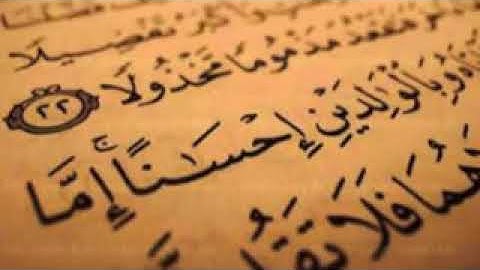 فَضَّلْنَا
وَأَكْبَرُ تَفْضِيلًا
فَتَقْعُدَ مَذْمُومًا مَّخْذُولًا ٢٢
وَبِٱلْوَٰلِدَيْنِ إِحْسَٰنًا إِمَّا
هُمَا فَلَا تَقُل